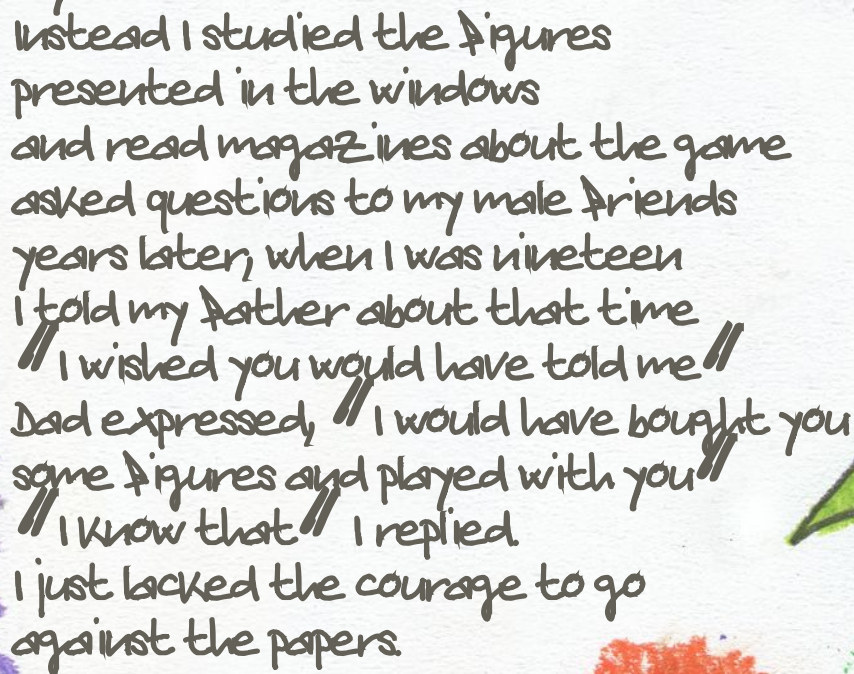 Instead I studied the figures
presented in the windows
and read magazines about the game
asked questions to my male friends
years later, when I was nineteen
I told my father about that time
"I wished you would have told me"
Dad expressed, "I would have bought you
some figures and played with you"
"I know that" I replied.
I just lacked the courage to go
against the papers.